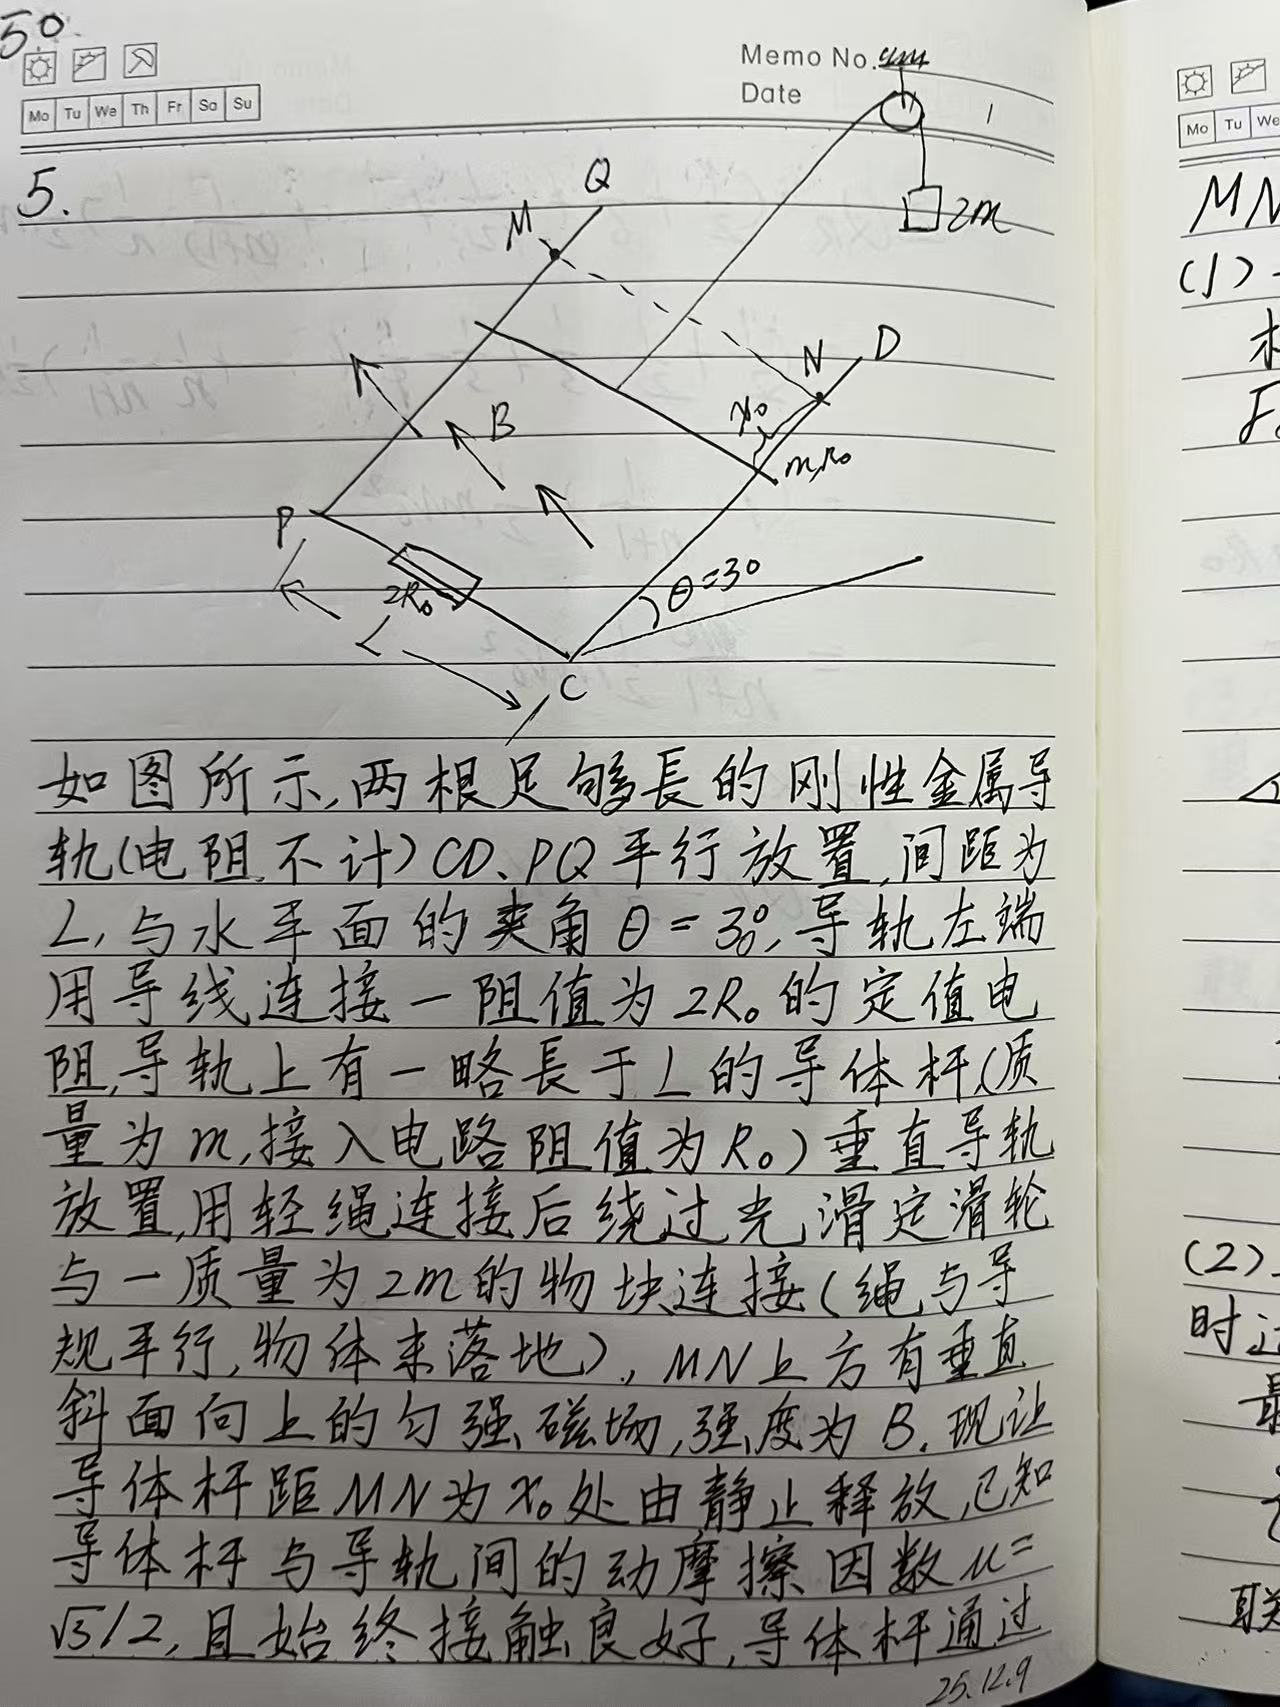 50
Memo No.
Date
Mo Tu We Th Fr Sa Su
1
5.
Q
M
2m
N D
x₀
B
m,R₀
P
2R₀
θ=30
L
C
如图所示,两根足够長的刚性金属导
轨(电阻不计)CD、PQ平行放置,间距为
L,与水平面的夹角θ=30°,导轨左端
用导线连接一阻值为2R₀的定值电
阻,导轨上有一略長于L的导体杆(质
量为m,接入电路阻值为R₀)垂直导轨
放置,用轻绳连接后绕过光滑定滑轮
与一质量为2m的物块连接(绳与导
规平行,物体未落地),MN上方有垂直
斜面向上的匀强磁场,强度为B.现让
导体杆距MN为x₀处由静止释放,已知
导体杆与导轨间的动摩擦因数μ=
√3/2,且始终接触良好,导体杆通过
25.12.9
Mo Tu We
MN
(1)
(2)
时
最
联